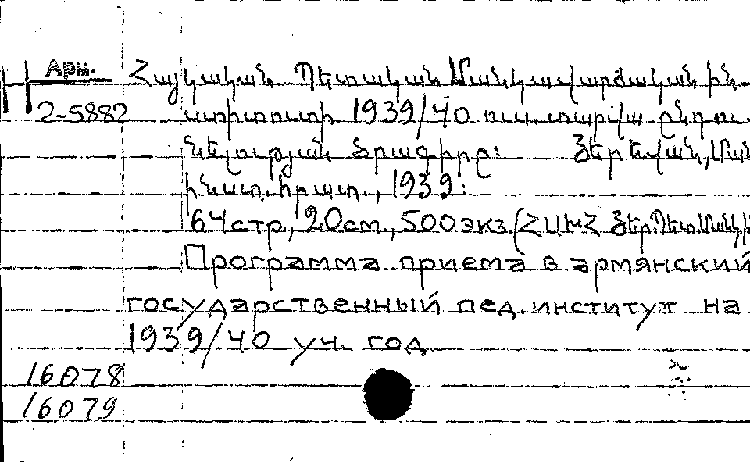 Арм. Հայկական Պետական Մանկավարժական ին
2-5882 ստիտուտի 1939/40 ուս. տարվա ընդու
նելության ծրագիրը: Յերևան, Ման.
ինստ. հրատ., 1939:
64стр., 20см., 500экз. (ՀՍԽՀ Յեր. Պետ. Մանկ. ի
Программа приема в армянский
государственный пед. институт на
1939/40 уч. год
16078
16079